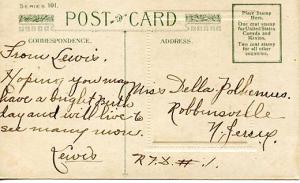 SERIES 101.
POST CARD
Place Stamp
Here.
One cent stamp
for United States
Canada and
Mexico.
Two cent stamp
for all other
countries.
CORRESPONDENCE.
ADDRESS.
From Lewis.
Hoping you may
have a bright birth
day and will live to
see many more.
Lewis
Miss Della Polhemus
Robbinsville
N. Jersey
R.F.D. # 1.